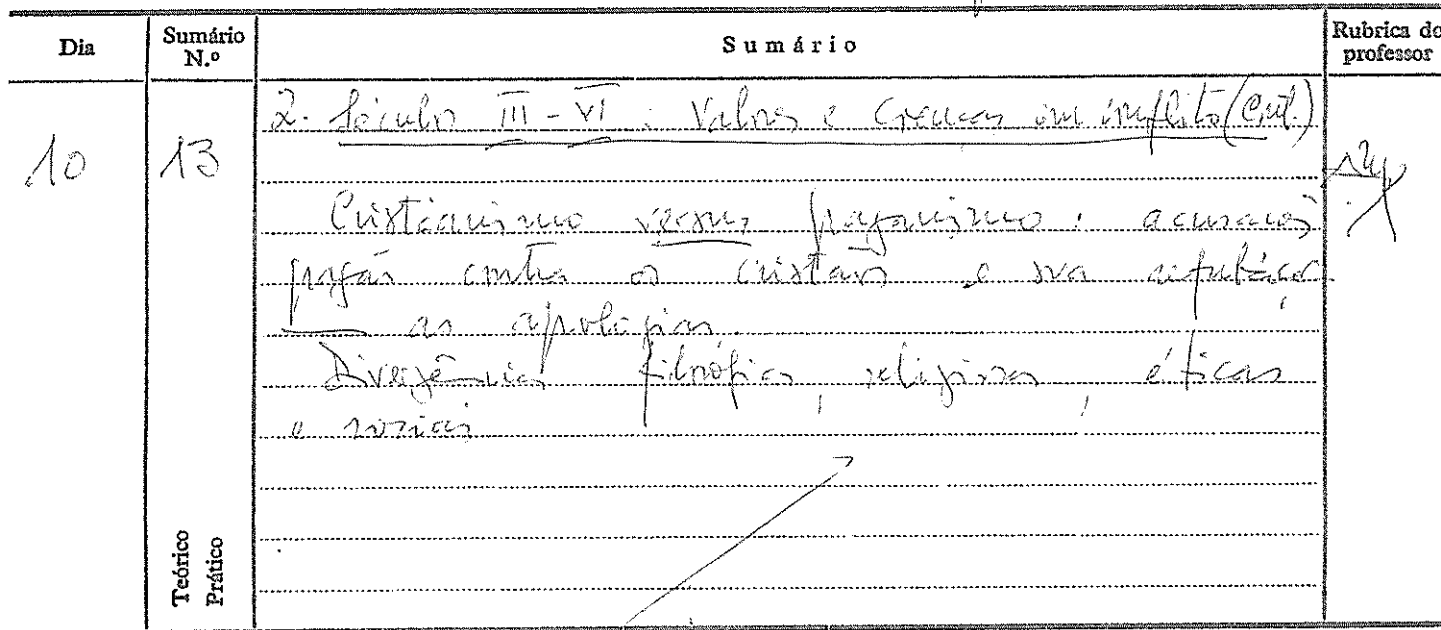 Dia
Sumário
N.º
Sumário
Rubrica do
professor
10
13
2. Séculos III - VI : Valores e Crenças em conflito (Cont.)
Cristianismo versus paganismo: acusações
pagãs contra os cristãos e sua refutação
as apologias.
Divergências filosóficas, religiosas, éticas
e sociais
Teórico
Prático